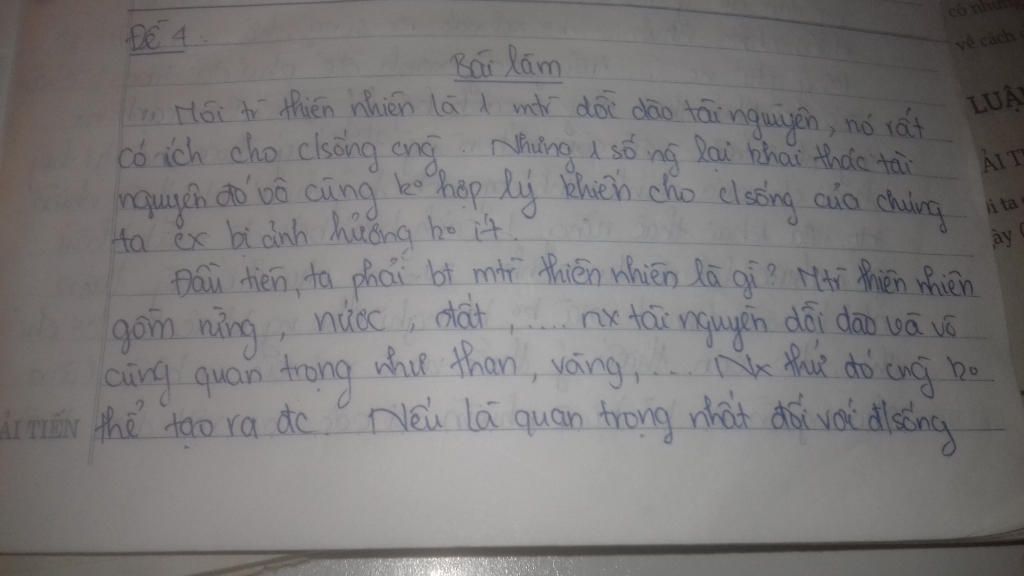 Đề 4.
Bài làm
Môi tr̀ thiên nhiên là 1 mtr̀ dồi dào tài nguyên, nó rất
có ích cho c/sống cng̀. Nhưng 1 số ng̀ lại khai thác tài
nguyên đó vô cùng ko hợp lý khiến cho c/sống của chúng
ta cx bị ảnh hưởng ko ít.
Đầu tiên, ta phải bt mtr̀ thiên nhiên là gì? Mtr̀ thiên nhiên
gồm rừng, nước, đất, .... nx tài nguyên dồi dào và vô
cùng quan trọng như than, vàng, ... Nx thứ đó cng̀ ko
thể tạo ra đc. Nếu là quan trọng nhất đối với đ/sống
có nhưng
về cách
LUẬ
ẢI T
ải TIẾN